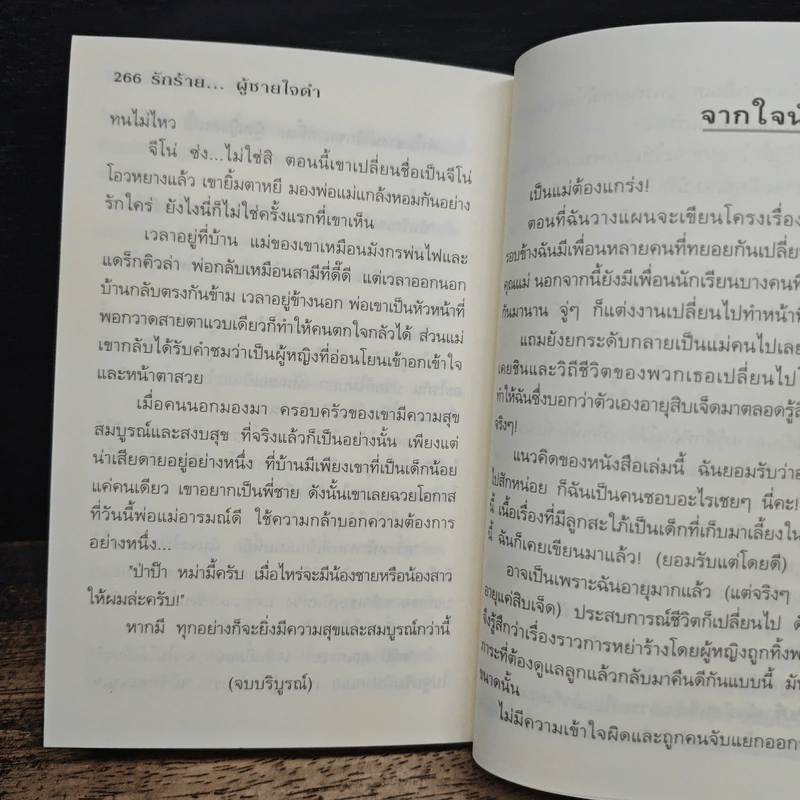 266 รักร้าย... ผู้ชายใจดำ
ทนไม่ไหว
จีโน่ ซ่ง...ไม่ใช่สิ ตอนนี้เขาเปลี่ยนชื่อเป็นจีโน่
โอวหยางแล้ว เขายิ้มตาหยี มองพ่อแม่แกล้งหอมกันอย่าง
รักใคร่ ยังไงนี่ก็ไม่ใช่ครั้งแรกที่เขาเห็น
เวลาอยู่ที่บ้าน แม่ของเขาเหมือนมังกรพ่นไฟและ
แดร็กคิวล่า พ่อกลับเหมือนสามีที่ดี๊ดี แต่เวลาออกนอก
บ้านกลับตรงกันข้าม เวลาอยู่ข้างนอก พ่อเขาเป็นหัวหน้าที่
พอกวาดสายตาแวบเดียวก็ทำให้คนตกใจกลัวได้ ส่วนแม่
เขากลับได้รับคำชมว่าเป็นผู้หญิงที่อ่อนโยนเข้าอกเข้าใจ
และหน้าตาสวย
เมื่อคนนอกมองมา ครอบครัวของเขามีความสุข
สมบูรณ์และสงบสุข ที่จริงแล้วก็เป็นอย่างนั้น เพียงแต่
น่าเสียดายอยู่อย่างหนึ่ง ที่บ้านมีเพียงเขาที่เป็นเด็กน้อย
แค่คนเดียว เขาอยากเป็นพี่ชาย ดังนั้นเขาเลยฉวยโอกาส
ที่วันนี้พ่อแม่อารมณ์ดี ใช้ความกล้าบอกความต้องการ
อย่างหนึ่ง...
"ป่าป๊า หม่ามี้ครับ เมื่อไหร่จะมีน้องชายหรือน้องสาว
ให้ผมล่ะครับ!"
หากมี ทุกอย่างก็จะยิ่งมีความสุขและสมบูรณ์กว่านี้
(จบบริบูรณ์)
จากใจนั
เป็นแม่ต้องแกร่ง!
ตอนที่ฉันวางแผนจะเขียนโครงเรื่อง
รอบข้างฉันมีเพื่อนหลายคนที่ทยอยกันเปลี่ย
คุณแม่ นอกจากนี้ยังมีเพื่อนนักเรียนบางคนที่
กันมานาน จู่ๆ ก็แต่งงานเปลี่ยนไปทำหน้าที่
แถมยังยกระดับกลายเป็นแม่คนไปเลย
เคยชินและวิถีชีวิตของพวกเธอเปลี่ยนไป
ทำให้ฉันซึ่งบอกว่าตัวเองอายุสิบเจ็ดมาตลอดรู้สึ
จริงๆ!
แนวคิดของหนังสือเล่มนี้ ฉันยอมรับว่า
ไปสักหน่อย ก็ฉันเป็นคนชอบอะไรเชยๆ นี่คะ!
นี้ เนื้อเรื่องที่มีลูกสะใภ้เป็นเด็กที่เก็บมาเลี้ยงใน
นี้ ฉันก็เคยเขียนมาแล้ว! (ยอมรับแต่โดยดี)
อาจเป็นเพราะฉันอายุมากแล้ว (แต่จริงๆ
อายุแค่สิบเจ็ด) ประสบการณ์ชีวิตก็เปลี่ยนไป
ถึงรู้สึกว่าเรื่องราวการหย่าร้างโดยผู้หญิงถูกทิ้ง
ภาระที่ต้องดูแลลูกแล้วกลับมาคืนดีกันแบบนี้ มัน
ขนาดนั้น
ไม่มีความเข้าใจผิดและถูกคนจับแยกออก